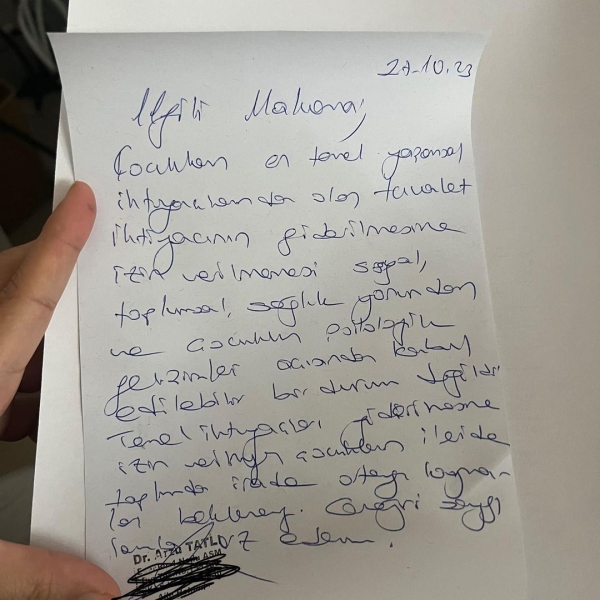 27.10.23
İlgili Makama,
Çocukların en temel yaşamsal
ihtiyaçlarından olan tuvalet
ihtiyacının giderilmesine
izin verilmemesi sosyal,
toplumsal, sağlık yönünden
ve çocukların psikolojik
gelişimleri açısından kabul
edilebilir bir durum değildir
Temel ihtiyaçları giderilmesine
izin verilmeyen çocukların ileride
toplumda
beklenemez. Gereği saygı
arz ederim.
Dr. Arzu TATLI
ASM